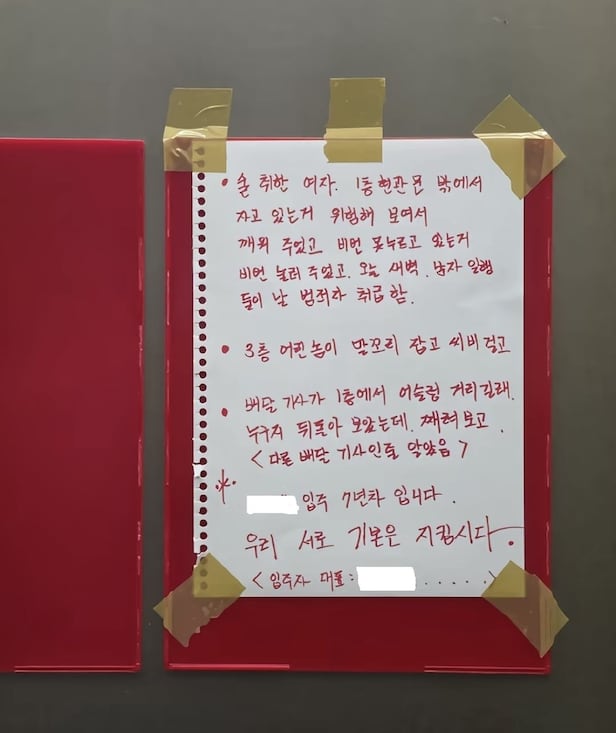 • 술 취한 여자. 1층 현관문 밖에서
자고 있는거 위험해 보여서
깨워 주었고 비번 못누르고 있는거
비번 눌러 주었고. 오늘 새벽. 남자 일행
들이 날 범죄자 취급함.
• 3층 어린놈이 말꼬리 잡고 씨비걸고
• 배달기사가 1층에서 어슬렁 거리길래.
누구지 뒤돌아 보았는데. 째려보고.
<다른 배달 기사인줄 알았음>
※ 입주 7년차 입니다.
우리 서로 기본은 지킵시다.
<입주자 대표: ......>